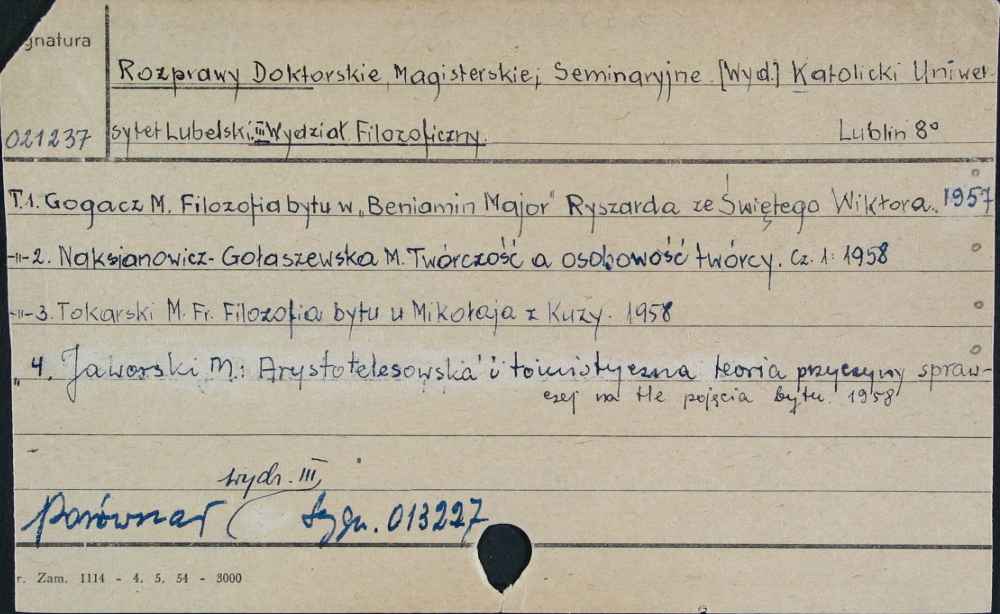 gnatura
Rozprawy Doktorskie, Magisterskie, Seminaryjne. [Wyd.] Katolicki Uniwer-
021237 sytet Lubelski. III Wydział Filozoficzny. Lublin 8°
T.1. Gogacz M. Filozofia bytu w „Beniamin Major" Ryszarda ze Świętego Wiktora. 1957
-"-2. Naksianowicz-Gołaszewska M. Twórczość a osobowość twórcy. Cz. 1: 1958
-"-3. Tokarski M. Fr. Filozofia bytu u Mikołaja z Kuzy. 1958
" 4. Jaworski M.: Arystotelesowska i tomistyczna teoria przyczyny spraw-
czej na tle pojęcia bytu. 1958
wydz. III,
Porównać sygn. 013227
r. Zam. 1114 - 4. 5. 54 - 3000